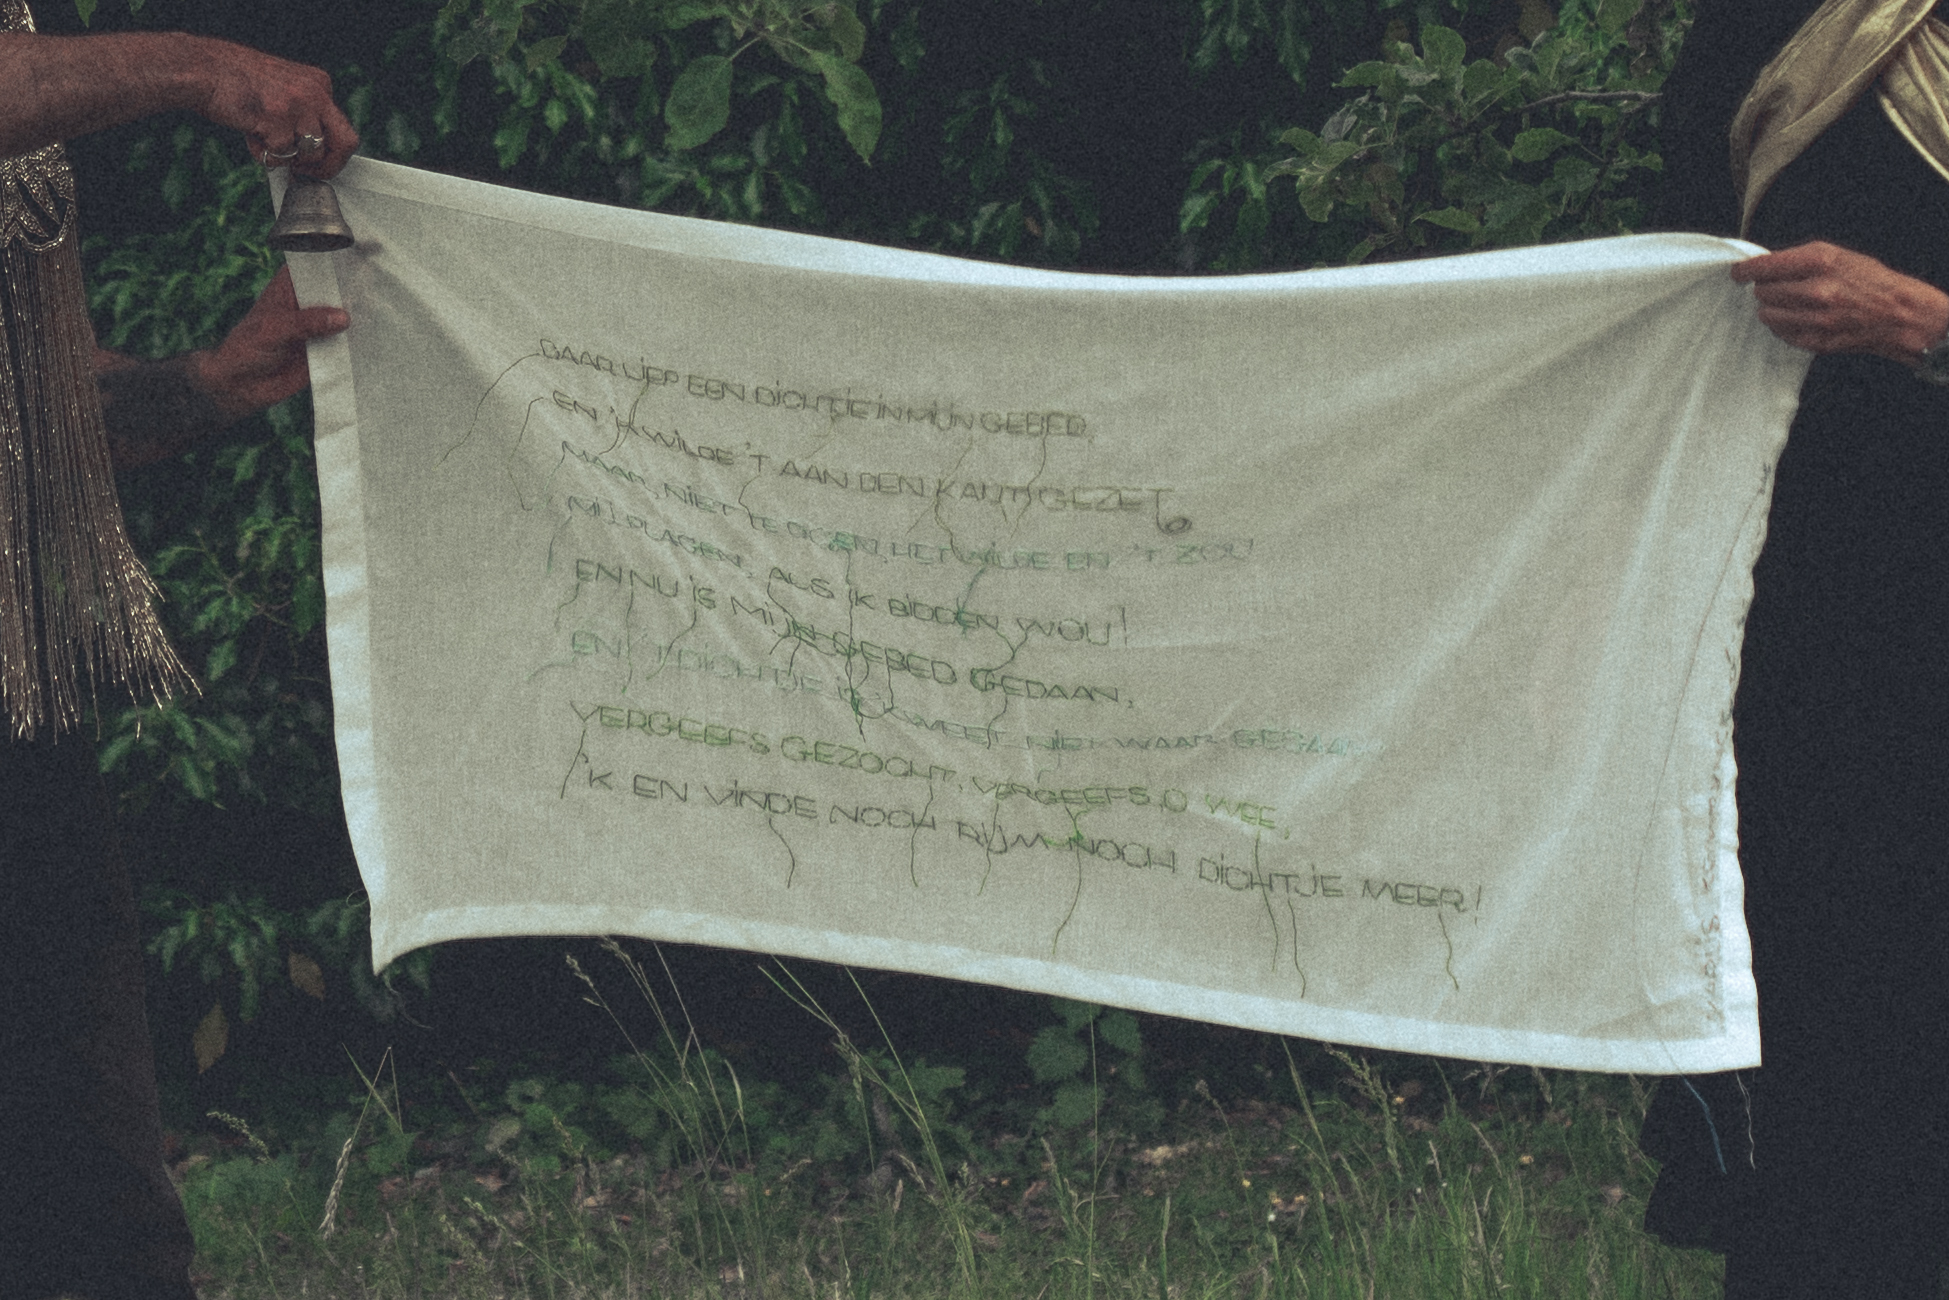 DAAR LIEP EEN DICHTJE IN MIJN GEBED,
EN 'K WILDE 'T AAN DEN KANT GEZET,
MAAR, NIET TE DOEN, HET WILDE EN 'T ZOU
MIJ PLAGEN, ALS IK BIDDEN WOU!
EN NU IS MIJN GEBED GEDAAN,
EN 'T DICHTJE IS, 'K WEET NIET WAAR GEGAAN
VERGEEFS GEZOCHT, VERGEEFS, O WEE,
'K EN VINDE NOCH RIJM NOCH DICHTJE MEER!